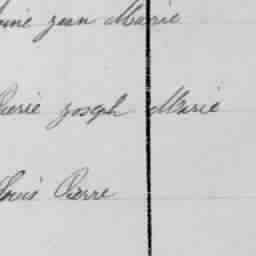 jean Marie
Pierre joseph Marie
Louis Pierre